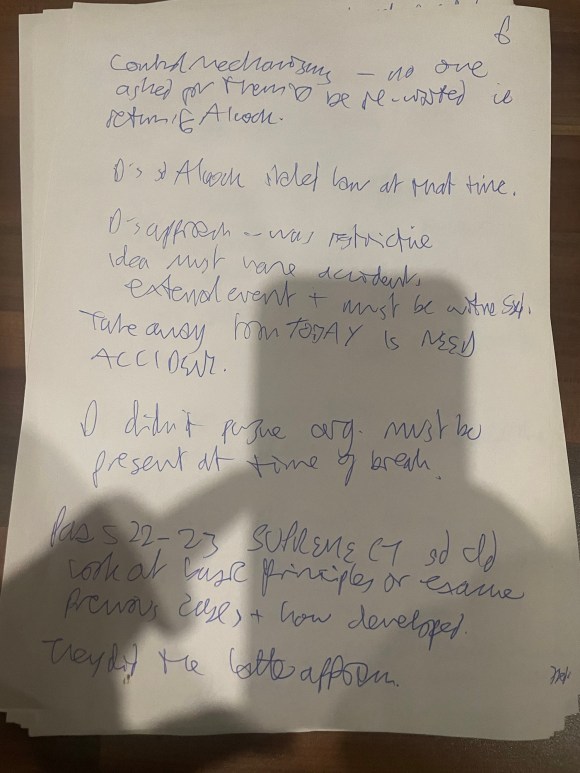 6
Control Mechanisms – no one
asked for them to be re-visited ie
return to Alcock.
D's sd Alcock stated law at that time.
D's approach – was restrictive
idea must have accident,
external event + must be witnessed.
Take away from TODAY is NEED
ACCIDENT.
D didn't pursue arg. must be
present at time of breach.
Paras 22-23 SUPREME CT sd cld
look at basic principles or examine
previous cases, + how developed.
They did the latter approach.